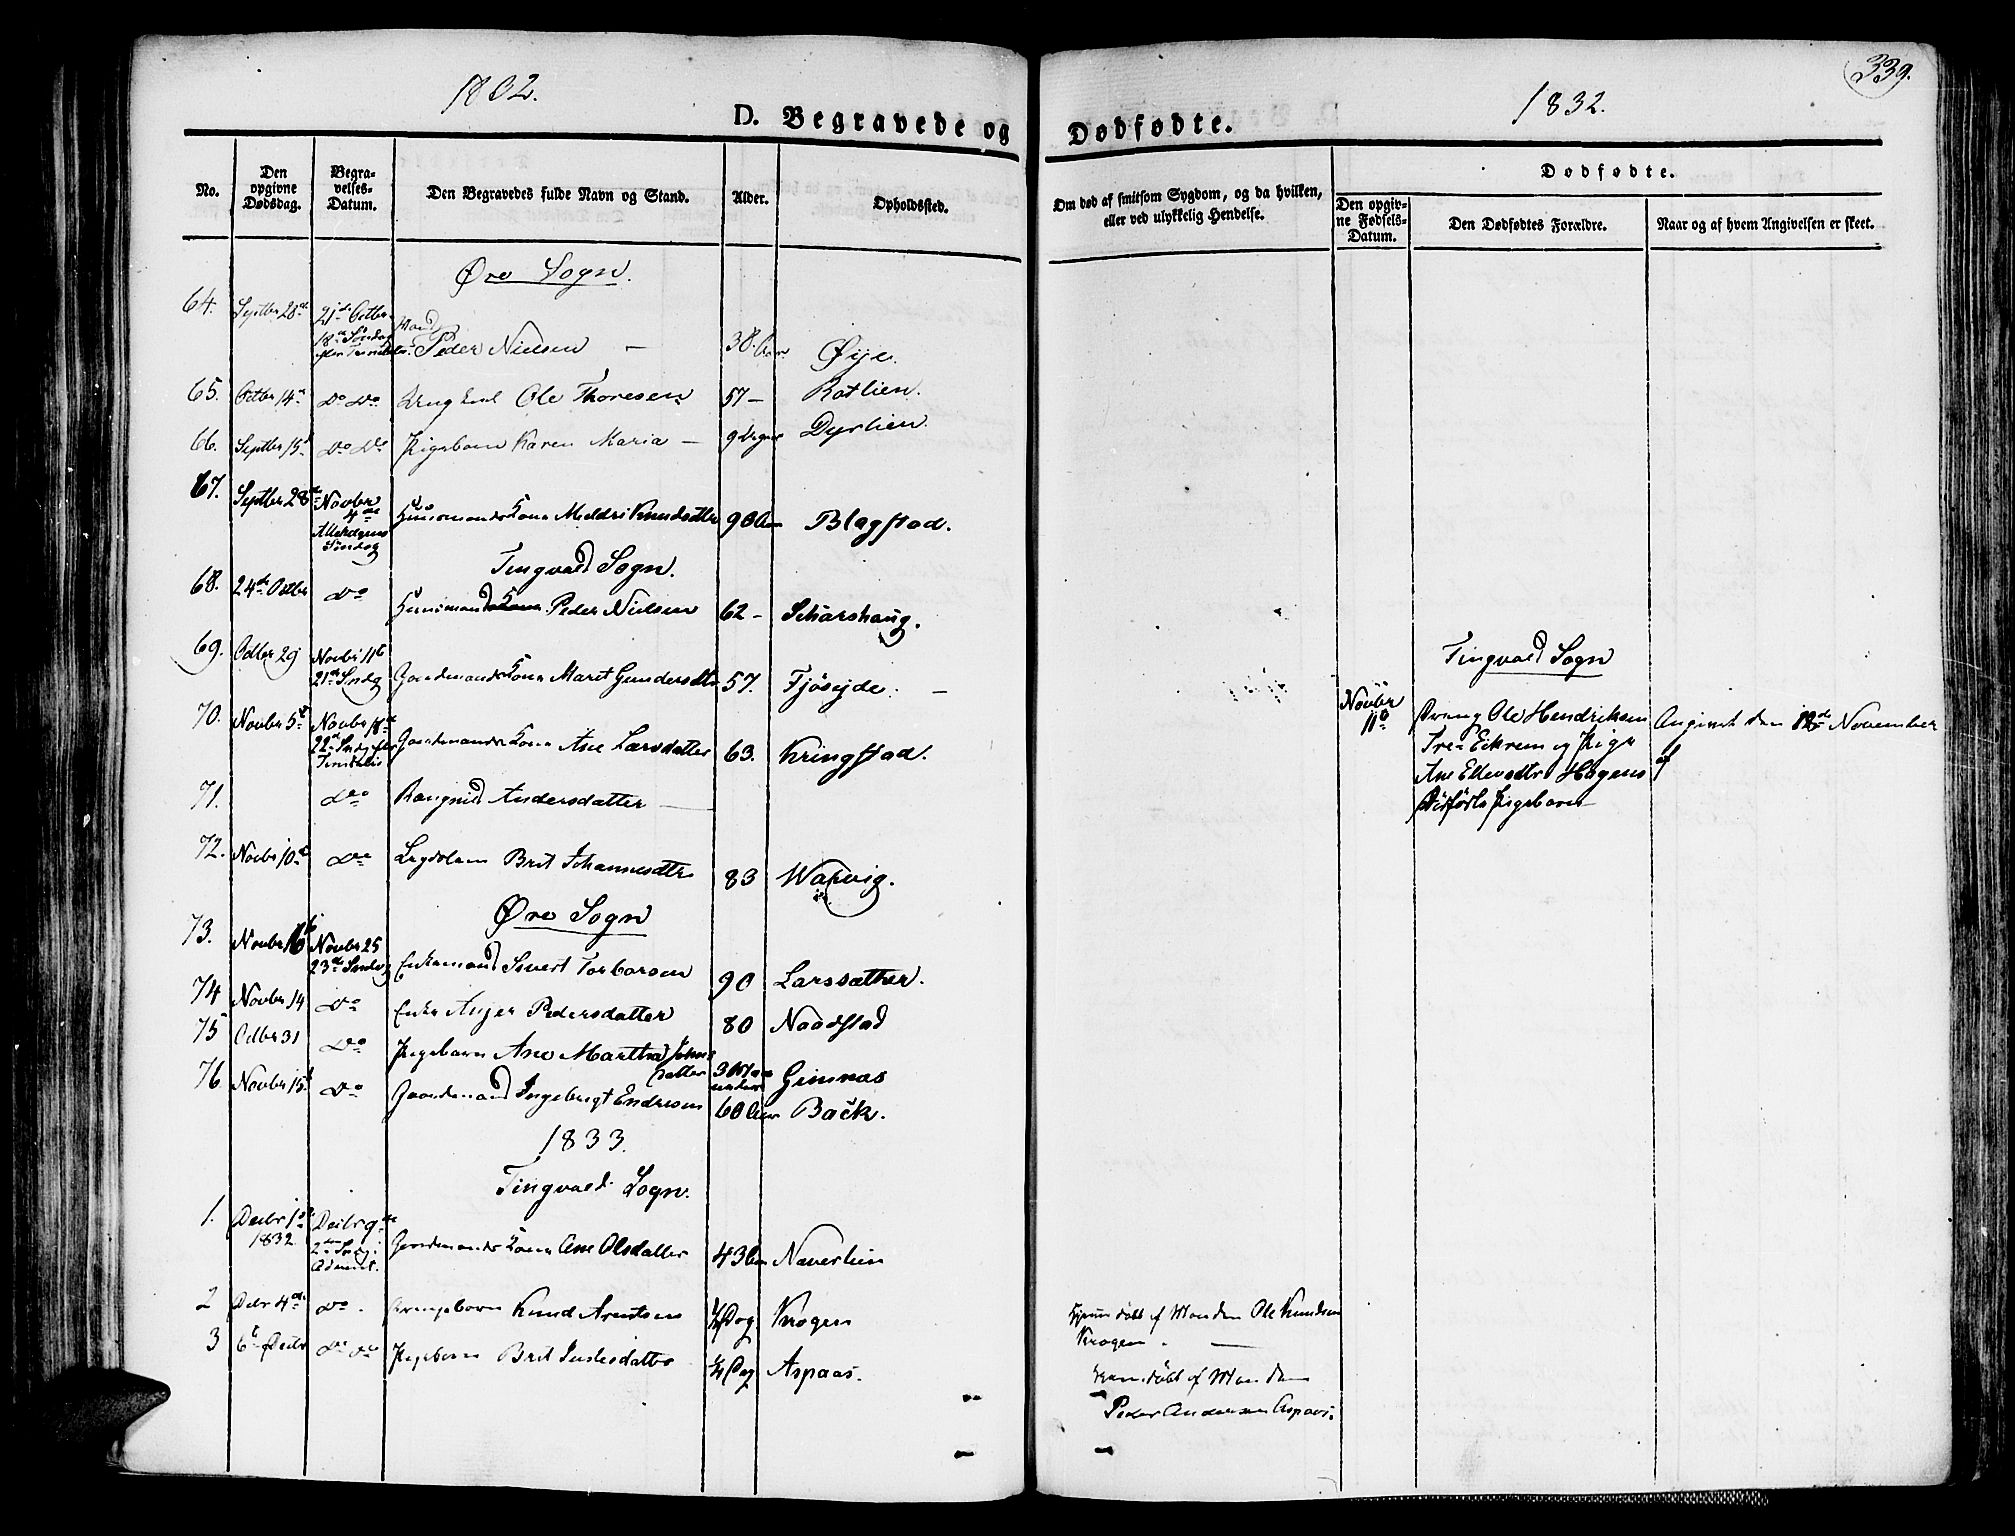 1832.
D. Begravede og
No.
Den opgivne Dødsdag.
Begravelses-Datum.
Den Begravedes fulde Navn og Stand.
Alder.
Opholdssted.
Øre Sogn.
64. Septbr 28de 21de Octbr 18de Søndag efter Trinitatis. Mand Peder Nielsen — 38 Aar Øye.
65. Octbr 14de Do Do Ungkarl Ole Thoresen 57 — Rotlien.
66. Septbr 15de Do Do Pigebarn Karen Maria — 9 Uger Dyrlien.
67. Septbr 28de Novbr 4de Allehelgens Søndag Huusmands Kone Meldri Knudsdatter 90 Aar Blagstad.
Tingvold Sogn.
68. 24de Octbr Do Huusmand Peder Nielsen 62 — Scharshaug.
69. Octbr 29 Novbr 11te 21de Sndg Gaardmands Kone Marit Gundersdtr 57. Fjøseide. —
70. Novbr 5te Novbr 18de 22de Sndg efter Trinitatis Gaardmands Kone Ane Larsdatter 63. Kringstad.
71. Do Rangnild Andersdatter —
72. Novbr 10de Do Lægdslem Brit Johannesdtr 83 Warvig.
Øre Sogn
73. Novbr 16te Novbr 25 23de Sndag Enkemand Sivert Torbersen 90 Larssæther.
74 Novbr 14 Do Enke Anger Pedersdatter 80 Naadstad
75 Octbr 31 Do Pigebarn Ane Martha Johnsdatter 3 Maaneder Gimnæs
76. Novbr 15de Do Gaardmand Ingebrigt Endresen 60 Aar Back.
1833.
Tingvold Sogn.
1. Decbr 1ste 1832 Decbr 9de 2den Sndg i Advent. Gaardmands Kone Ane Olsdatter 43 Aar Naverlien
2 Decbr 4de Do. Drengebarn Knud Arntsen ½ Dag Krogen
3 6te Decbr Do Do Pigebarn Brit ½ Dag Aspaas.
339.
1832.
Dødfødte.
Om død af smitsom Sygdom, og da hvilken, eller ved ulykkelig Hendelse.
Dødfødte.
Den opgivne Fødsels-Datum.
Den Dødfødtes Forældre.
Naar og af hvem Angivelsen er skeet.
Tingvold Sogn
Novbr 11te
Dreng Ole Hendriksen
Eikrem og Pige
Ane Hagens
Dødfødte Pigebarn
Angivet den 18de November
af
Hjemmedøbt af Manden Ole Knudsen
Krogen. —
Hjemmedøbt af Manden
Peder Andersen Aspaas.